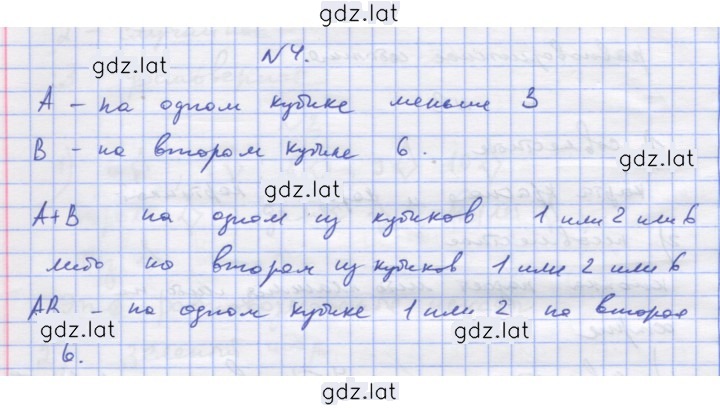 gdz.lat
N4.
gdz.lat
A - на одном кубике меньше 3
B - на втором кубике 6.
gdz.lat
gdz.lat
A+B на одном из кубиков 1 или 2 или 6
либо на втором из кубиков 1 или 2 или 6
AB - на одном кубике 1 или 2 на втором
gdz.lat
gdz.lat
6.
gdz.lat